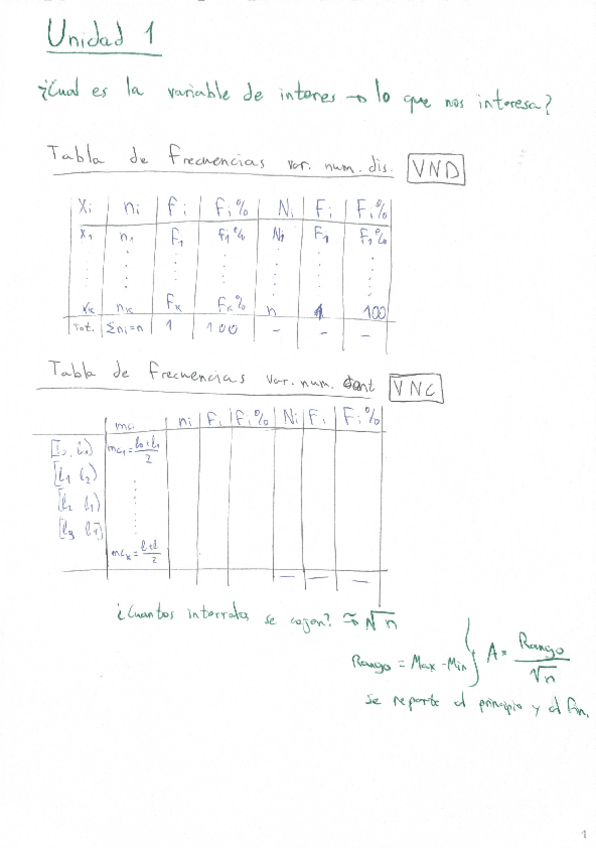 Unidad 1
¿Cual es la variable de interes → lo que nos interesa?
Tabla de frecuencias var. num. dis. VND
Xi ni fi fi% Ni Fi Fi%
X1 n1 f1 f1% N1 F1 F1%
Xk nk fk fk% n 1 100
Tot. Σni=n 1 100 - - -
Tabla de frecuencias var. num. cont VNC
mci ni fi fi% Ni Fi Fi%
[l0, l1) mc1 = l0+l1/2
[l1 l2)
[l2 l3)
[l3
mck = l+l/2
- - -
¿Cuantos intervalos se cogen? ≈ √n
Rango = Max - Min } A = Rango/√n
se reparte el principio y el fin.
1